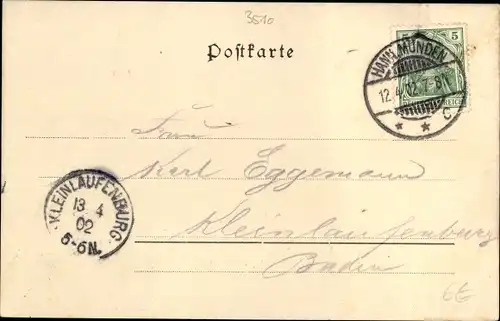 3510
Postkarte
5
REICH
HANN. MÜNDEN
12.4.02.7-8N.
* * C
Frau
Karl Eggemann
Kleinlaufenburg
Baden
KLEINLAUFENBURG
13 4
02
6-6N.
6E